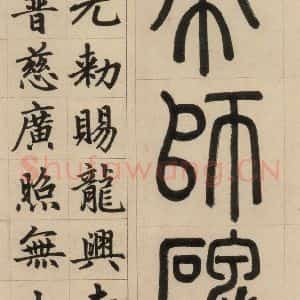 帝師碑
元勅賜龍興寺
普慈廣照無上
Shufawang.CN